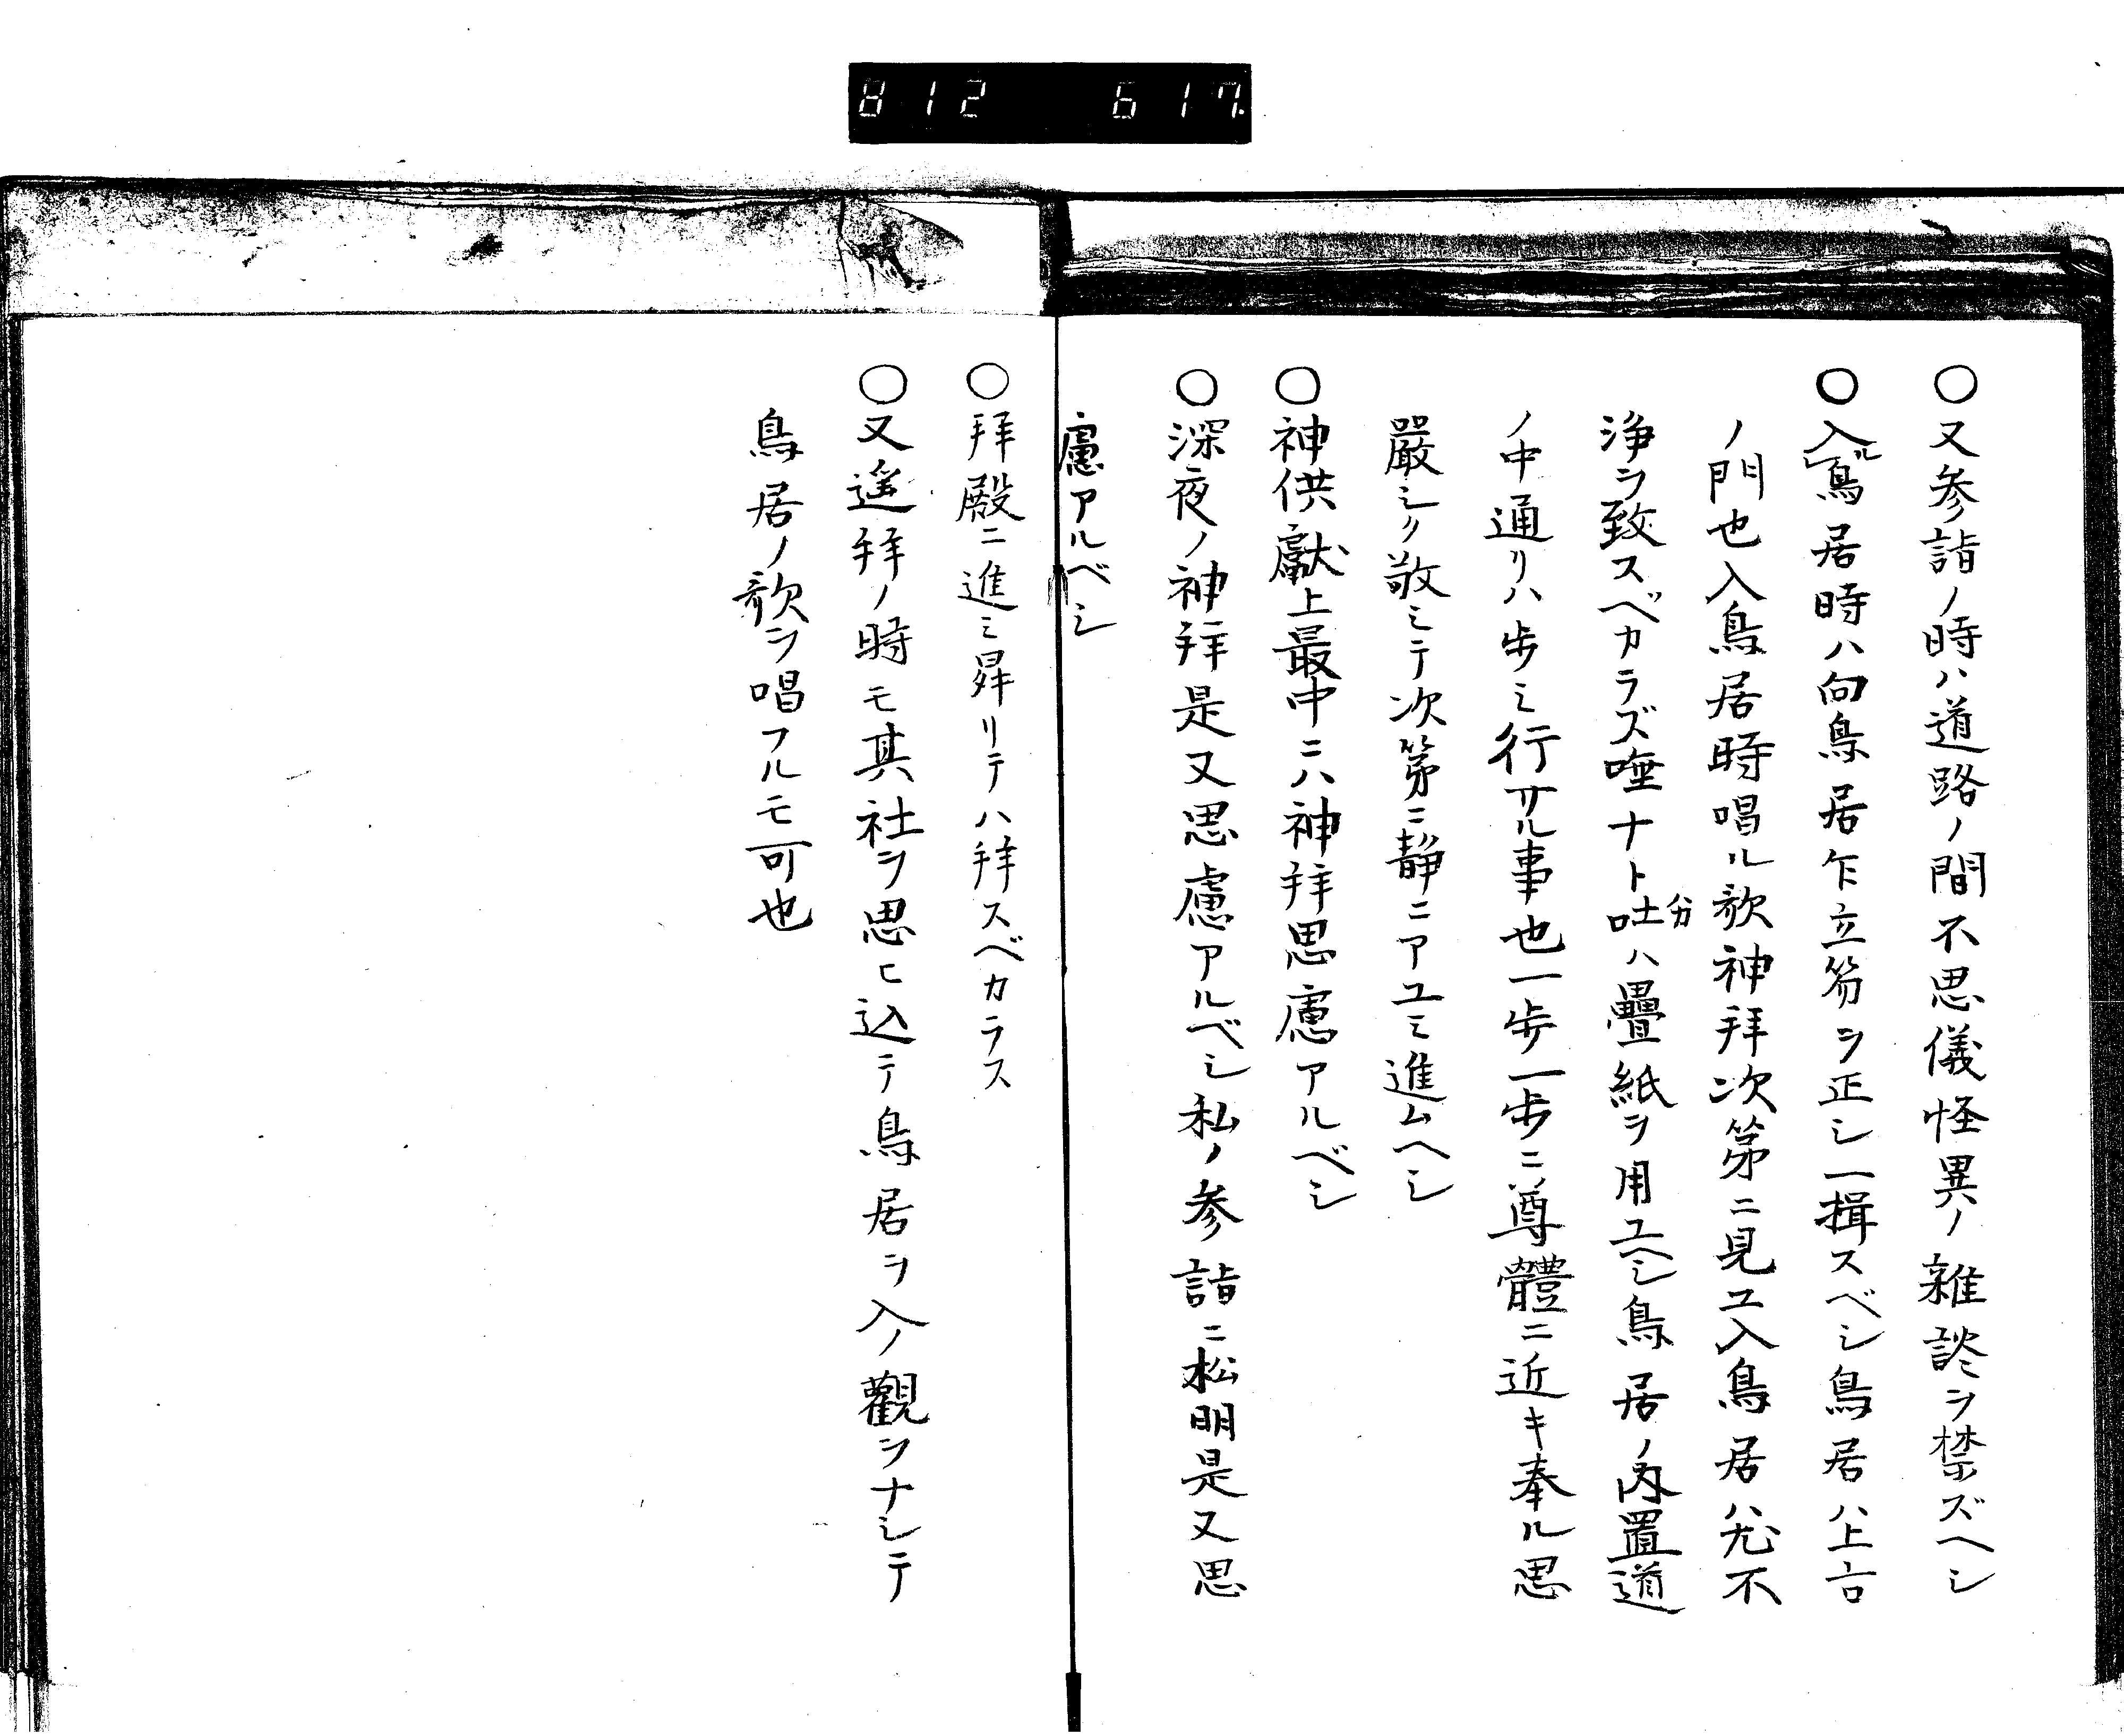 812 617
○又参詣ノ時ハ道路ノ間不思儀怪異ノ雑談ヲ禁ズヘシ
○入ル鳥居時ハ向鳥居乍立笏ヲ正シ一揖スベシ鳥居ハ上古
ノ門也入鳥居時唱ル歌神拜次第ニ見ユ入鳥居ハ尤不
浄ヲ致スベカラズ唾ナト吐分ハ疊紙ヲ用ユヘシ鳥居ノ内置道
ノ中通リハ歩ミ行サル事也一歩一歩ニ尊體ニ近キ奉ル思
嚴シク敬ミテ次第ニ静ニアユミ進ムヘシ
○神供獻上最中ニハ神拜思慮アルベシ
○深夜ノ神拜是又思慮アルベシ私ノ参詣ニ松明是又思
慮アルベシ
○拜殿ニ進ミ昇リテハ拜スベカラス
○又遥拜ノ時モ其社ヲ思ヒ込テ鳥居ヲ入ノ觀ヲナシテ
鳥居ノ歌ヲ唱フルモ可也